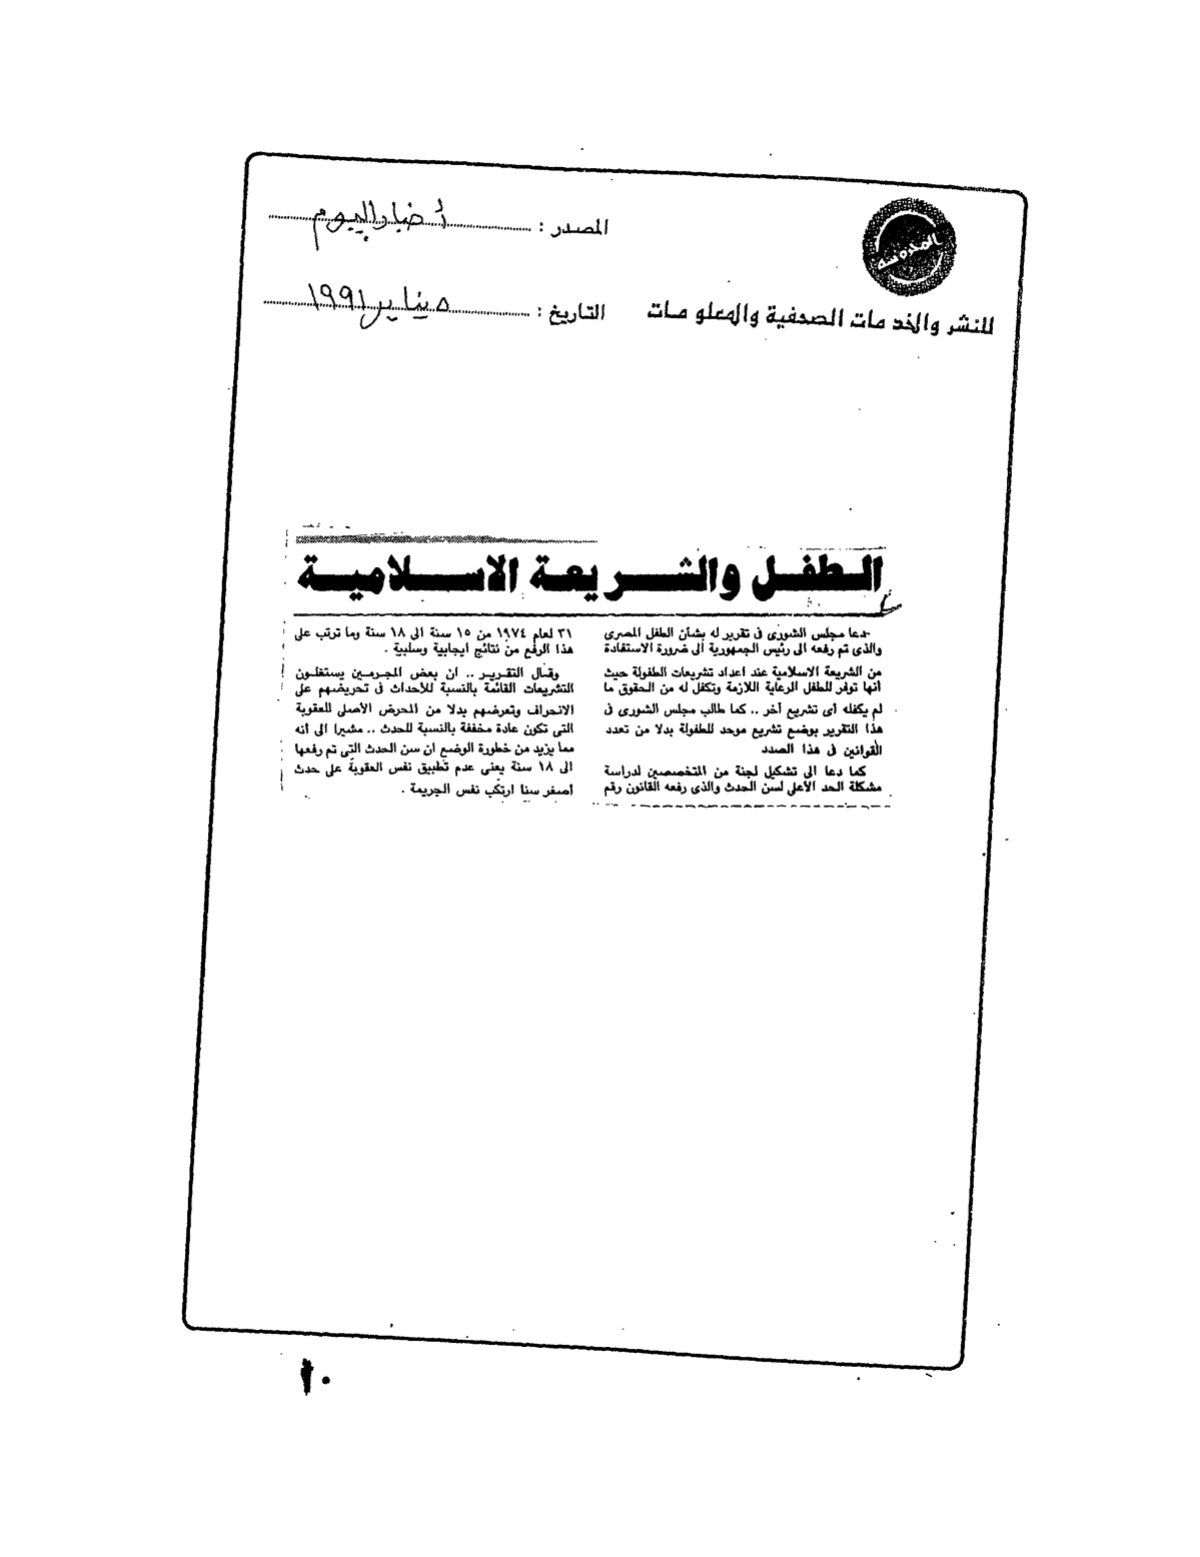 المحروسة
للنشر والخدمات الصحفية والمعلومات
المصدر : أخبار اليوم
التاريخ : ٥ يناير ١٩٩١
الطفل والشريعة الاسلامية
دعا مجلس الشورى فى تقرير له بشأن الطفل المصرى
والذى تم رفعه الى رئيس الجمهورية الى ضرورة الاستفادة
من الشريعة الاسلامية عند اعداد تشريعات الطفولة حيث
أنها توفر للطفل الرعاية اللازمة وتكفل له من الحقوق ما
لم يكفله أى تشريع آخر .. كما طالب مجلس الشورى فى
هذا التقرير بوضع تشريع موحد للطفولة بدلا من تعدد
القوانين فى هذا الصدد
كما دعا الى تشكيل لجنة من المتخصصين لدراسة
مشكلة الحد الأعلى لسن الحدث والذى رفعه القانون رقم
٣١ لعام ١٩٧٤ من ١٥ سنة الى ١٨ سنة وما ترتب على
هذا الرفع من نتائج ايجابية وسلبية .
وقال التقرير .. ان بعض المجرمين يستغلون
التشريعات القائمة بالنسبة للأحداث فى تحريضهم على
الانحراف وتعرضهم بدلا من المحرض الأصلى للعقوبة
التى تكون عادة مخففة بالنسبة للحدث .. مشيرا الى انه
مما يزيد من خطورة الوضع ان سن الحدث التى تم رفعها
الى ١٨ سنة يعنى عدم تطبيق نفس العقوبة على حدث
أصغر سنا ارتكب نفس الجريمة .
١٠